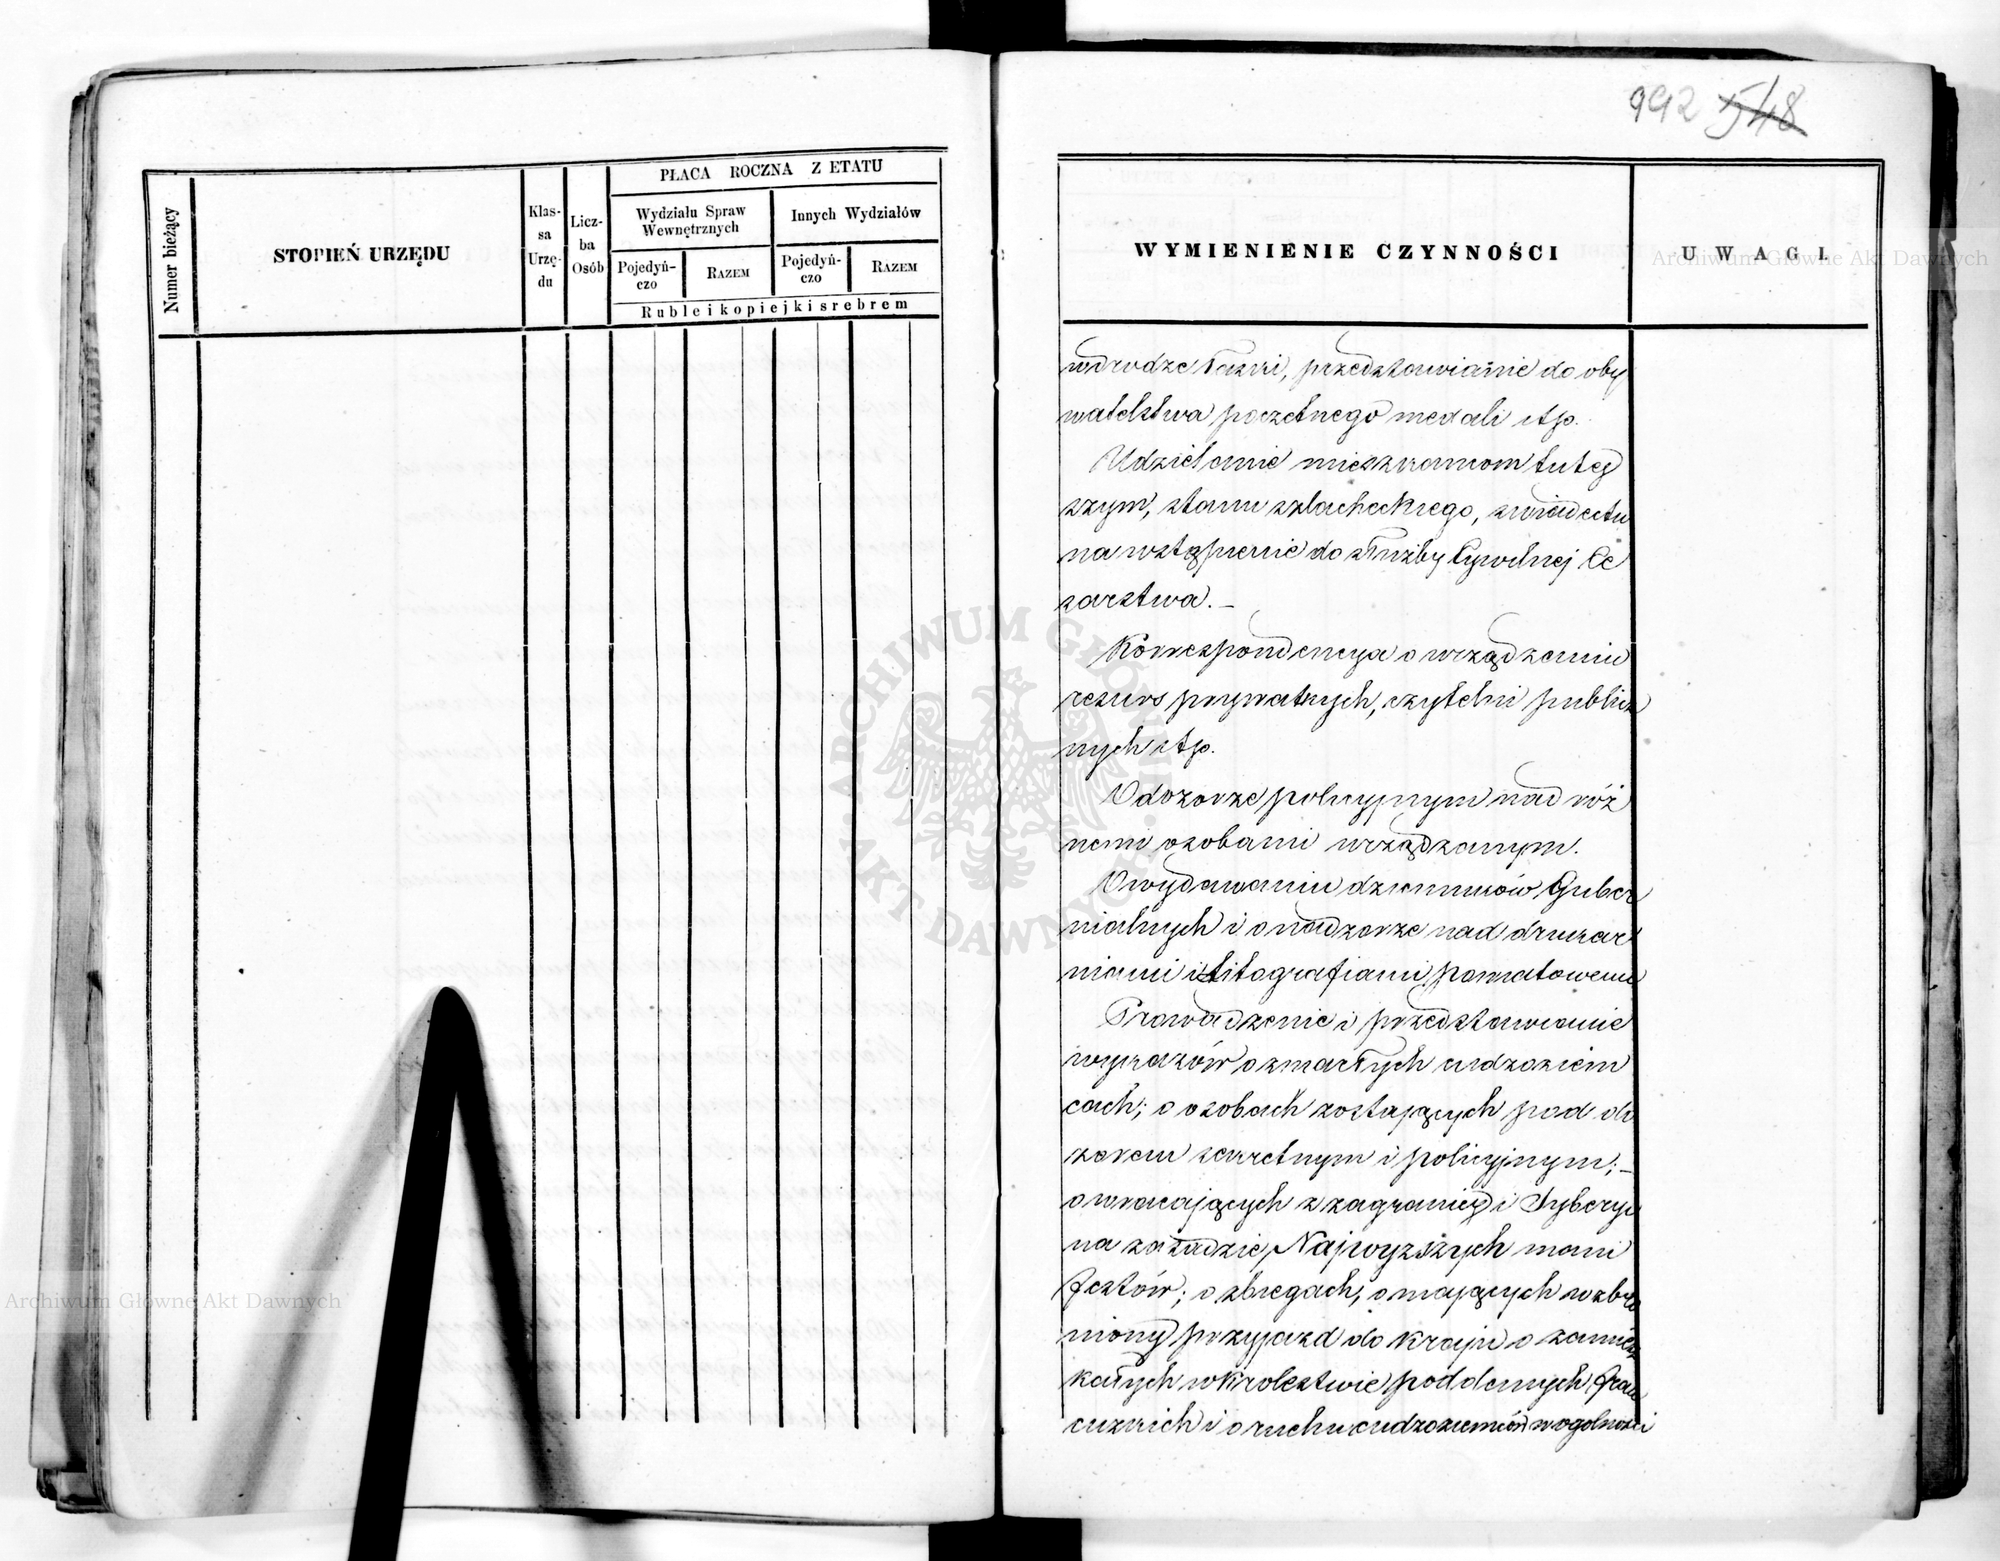 PŁACA ROCZNA Z ETATU
Numer bieżący
STOPIEŃ URZĘDU
Klas-
sa
Urzę-
du
Licz-
ba
Osób
Wydziału Spraw
Wewnętrznych
Innych Wydziałów
Pojedyń-
czo
RAZEM
Pojedyń-
czo
RAZEM
Ruble i kopiejki srebrem
992 548
WYMIENIENIE CZYNNOŚCI
UWAGI
w drodze łaski, przedstawianie do oby
watelstwa poczetnego medali itp.
Udzielanie mieszkancom tutej
szym, stanu szlacheckiego, swiadectw
na wstąpienie do służby Cywilnej Ce
sarstwa. _
Korrespondencya o urządzeniu
resurs prywatnych, czytelni publicz
nych itp.
O dozorze policyjnym nad róż
nemi osobami urządzanym.
O wydawaniu dzienników Guber
nialnych i o nadzorze nad drukar
niami i litografiami powiatowemi
Prowadzenie i przedstawianie
wykazów o zmarłych cudzoziem
cach; o osobach zostających pod do
zorem sekretnym i policyjnym; _
o wracających z zagranicy i Syberyi
na zasadzie Najwyższych mani
festów; o zbiegach, o mających wzbro
niony przyjazd do kraju o zamiesz
kałych w Krolestwie poddanych fran
cuzkich i o ruchu cudzoziemców w ogolności
Archiwum Główne Akt Dawnych
Archiwum Główne Akt Dawnych
ARCHIWUM GŁÓWNE AKT DAWNYCH